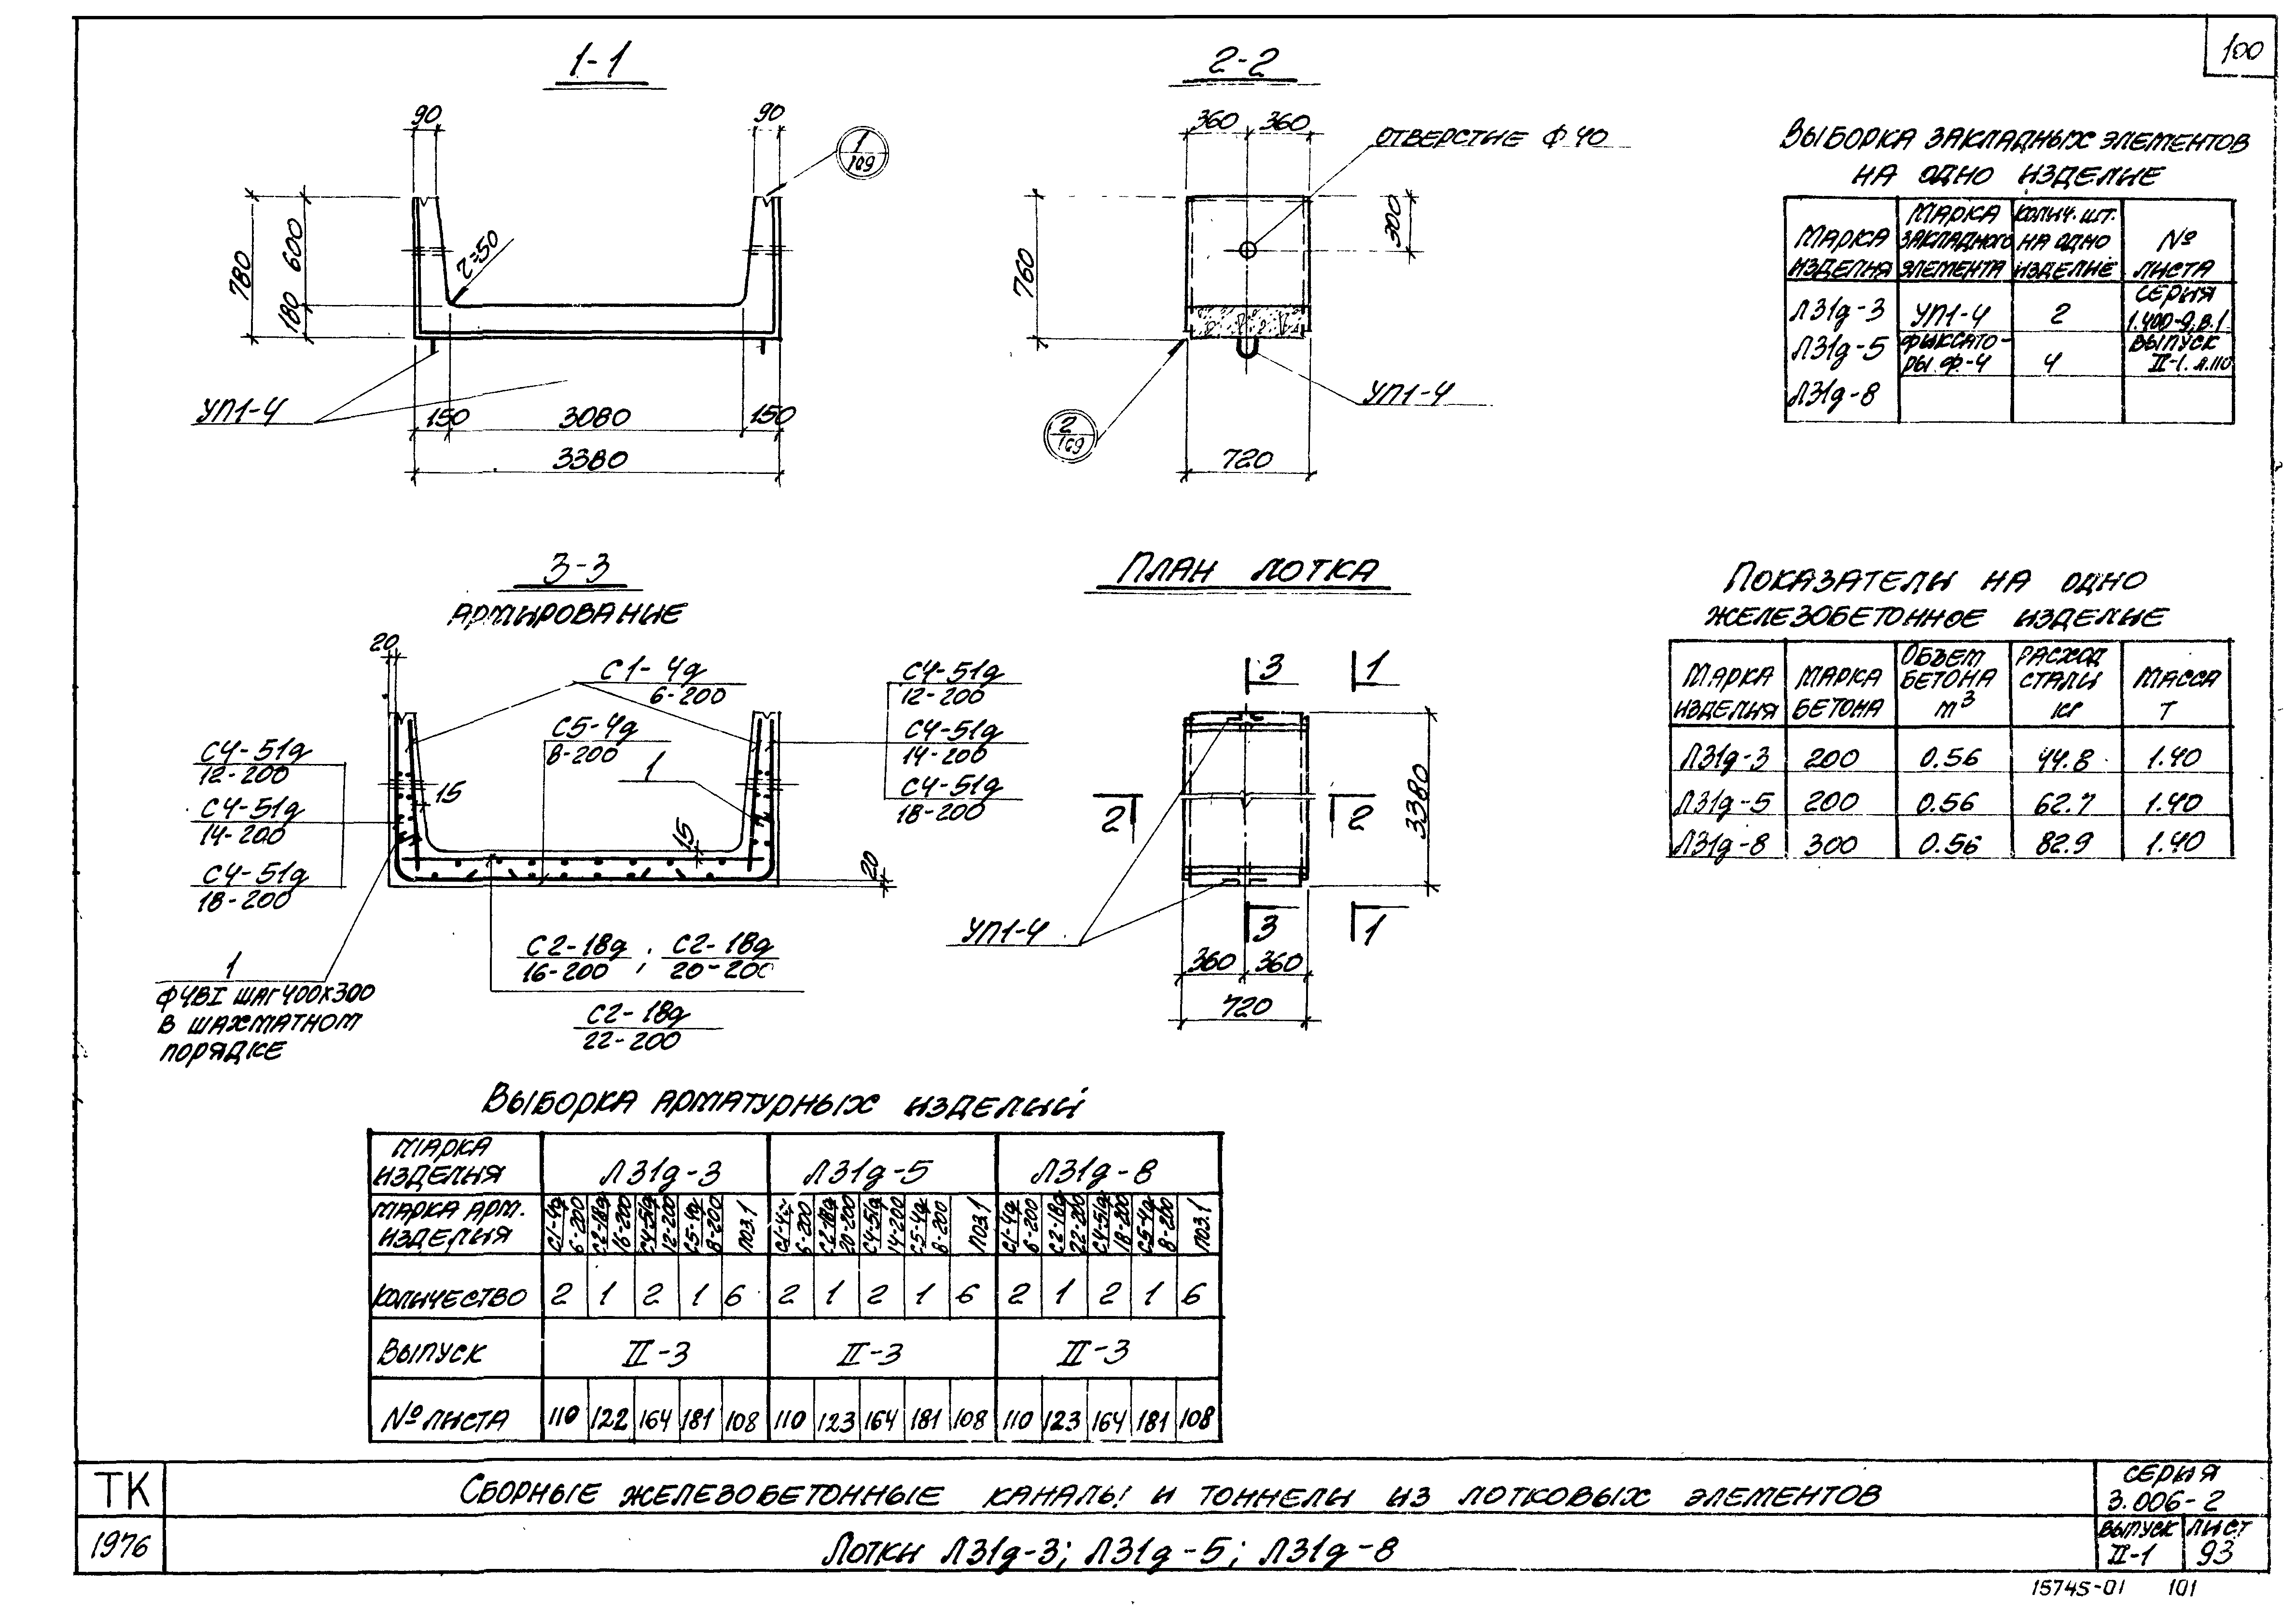 100
1-1
90
90
1
109
780
600
180
r=50
УП1-4
150
3080
150
3380
2-2
360
360
ОТВЕРСТИЕ Ф 40
300
760
УП1-4
2
109
720
ВЫБОРКА ЗАКЛАДНЫХ ЭЛЕМЕНТОВ
НА ОДНО ИЗДЕЛИЕ
МАРКА ИЗДЕЛИЯ | МАРКА ЗАКЛАДНОГО ЭЛЕМЕНТА | КОЛИЧ. ШТ. НА ОДНО ИЗДЕЛИЕ | № ЛИСТА
Л31д-3 | УП1-4 | 2 | СЕРИЯ 1.400-9, В.1.
Л31д-5 | ФИКСАТОРЫ Ф-4 | 4 | ВЫПУСК II-1. л.110
Л31д-8
3-3
АРМИРОВАНИЕ
20
С1-4д
6-200
С5-4д
8-200
1
С4-51д
12-200
С4-51д
14-200
С4-51д
18-200
С4-51д
12-200
С4-51д
14-200
С4-51д
18-200
15
15
20
С2-18д , С2-18д
16-200 , 20-200
С2-18д
22-200
1
Ф4ВI ШАГ 400×300
В ШАХМАТНОМ
ПОРЯДКЕ
ПЛАН ЛОТКА
3
1
2
2
3380
УП1-4
3
1
360
360
720
ПОКАЗАТЕЛИ НА ОДНО
ЖЕЛЕЗОБЕТОННОЕ ИЗДЕЛИЕ
МАРКА ИЗДЕЛИЯ | МАРКА БЕТОНА | ОБЪЕМ БЕТОНА м³ | РАСХОД СТАЛИ кг | МАССА Т
Л31д-3 | 200 | 0.56 | 44.8 | 1.40
Л31д-5 | 200 | 0.56 | 62.7 | 1.40
Л31д-8 | 300 | 0.56 | 82.9 | 1.40
ВЫБОРКА АРМАТУРНЫХ ИЗДЕЛИЙ
МАРКА ИЗДЕЛИЯ | Л31д-3 | Л31д-5 | Л31д-8
МАРКА АРМ. ИЗДЕЛИЯ | С1-4д 6-200 | С2-18д 16-200 | С4-51д 12-200 | С5-4д 8-200 | ПОЗ.1 | С1-4д 6-200 | С2-18д 20-200 | С4-51д 14-200 | С5-4д 8-200 | ПОЗ.1 | С1-4д 6-200 | С2-18д 22-200 | С4-51д 18-200 | С5-4д 8-200 | ПОЗ.1
КОЛИЧЕСТВО | 2 | 1 | 2 | 1 | 6 | 2 | 1 | 2 | 1 | 6 | 2 | 1 | 2 | 1 | 6
ВЫПУСК | II-3 | II-3 | II-3
№ ЛИСТА | 110 | 122 | 164 | 181 | 108 | 110 | 123 | 164 | 181 | 108 | 110 | 123 | 164 | 181 | 108
ТК
1976
СБОРНЫЕ ЖЕЛЕЗОБЕТОННЫЕ КАНАЛЫ И ТОННЕЛИ ИЗ ЛОТКОВЫХ ЭЛЕМЕНТОВ
ЛОТКИ Л31д-3; Л31д-5; Л31д-8
СЕРИЯ
3.006-2
ВЫПУСК ЛИСТ
II-1 93
15745-01 101